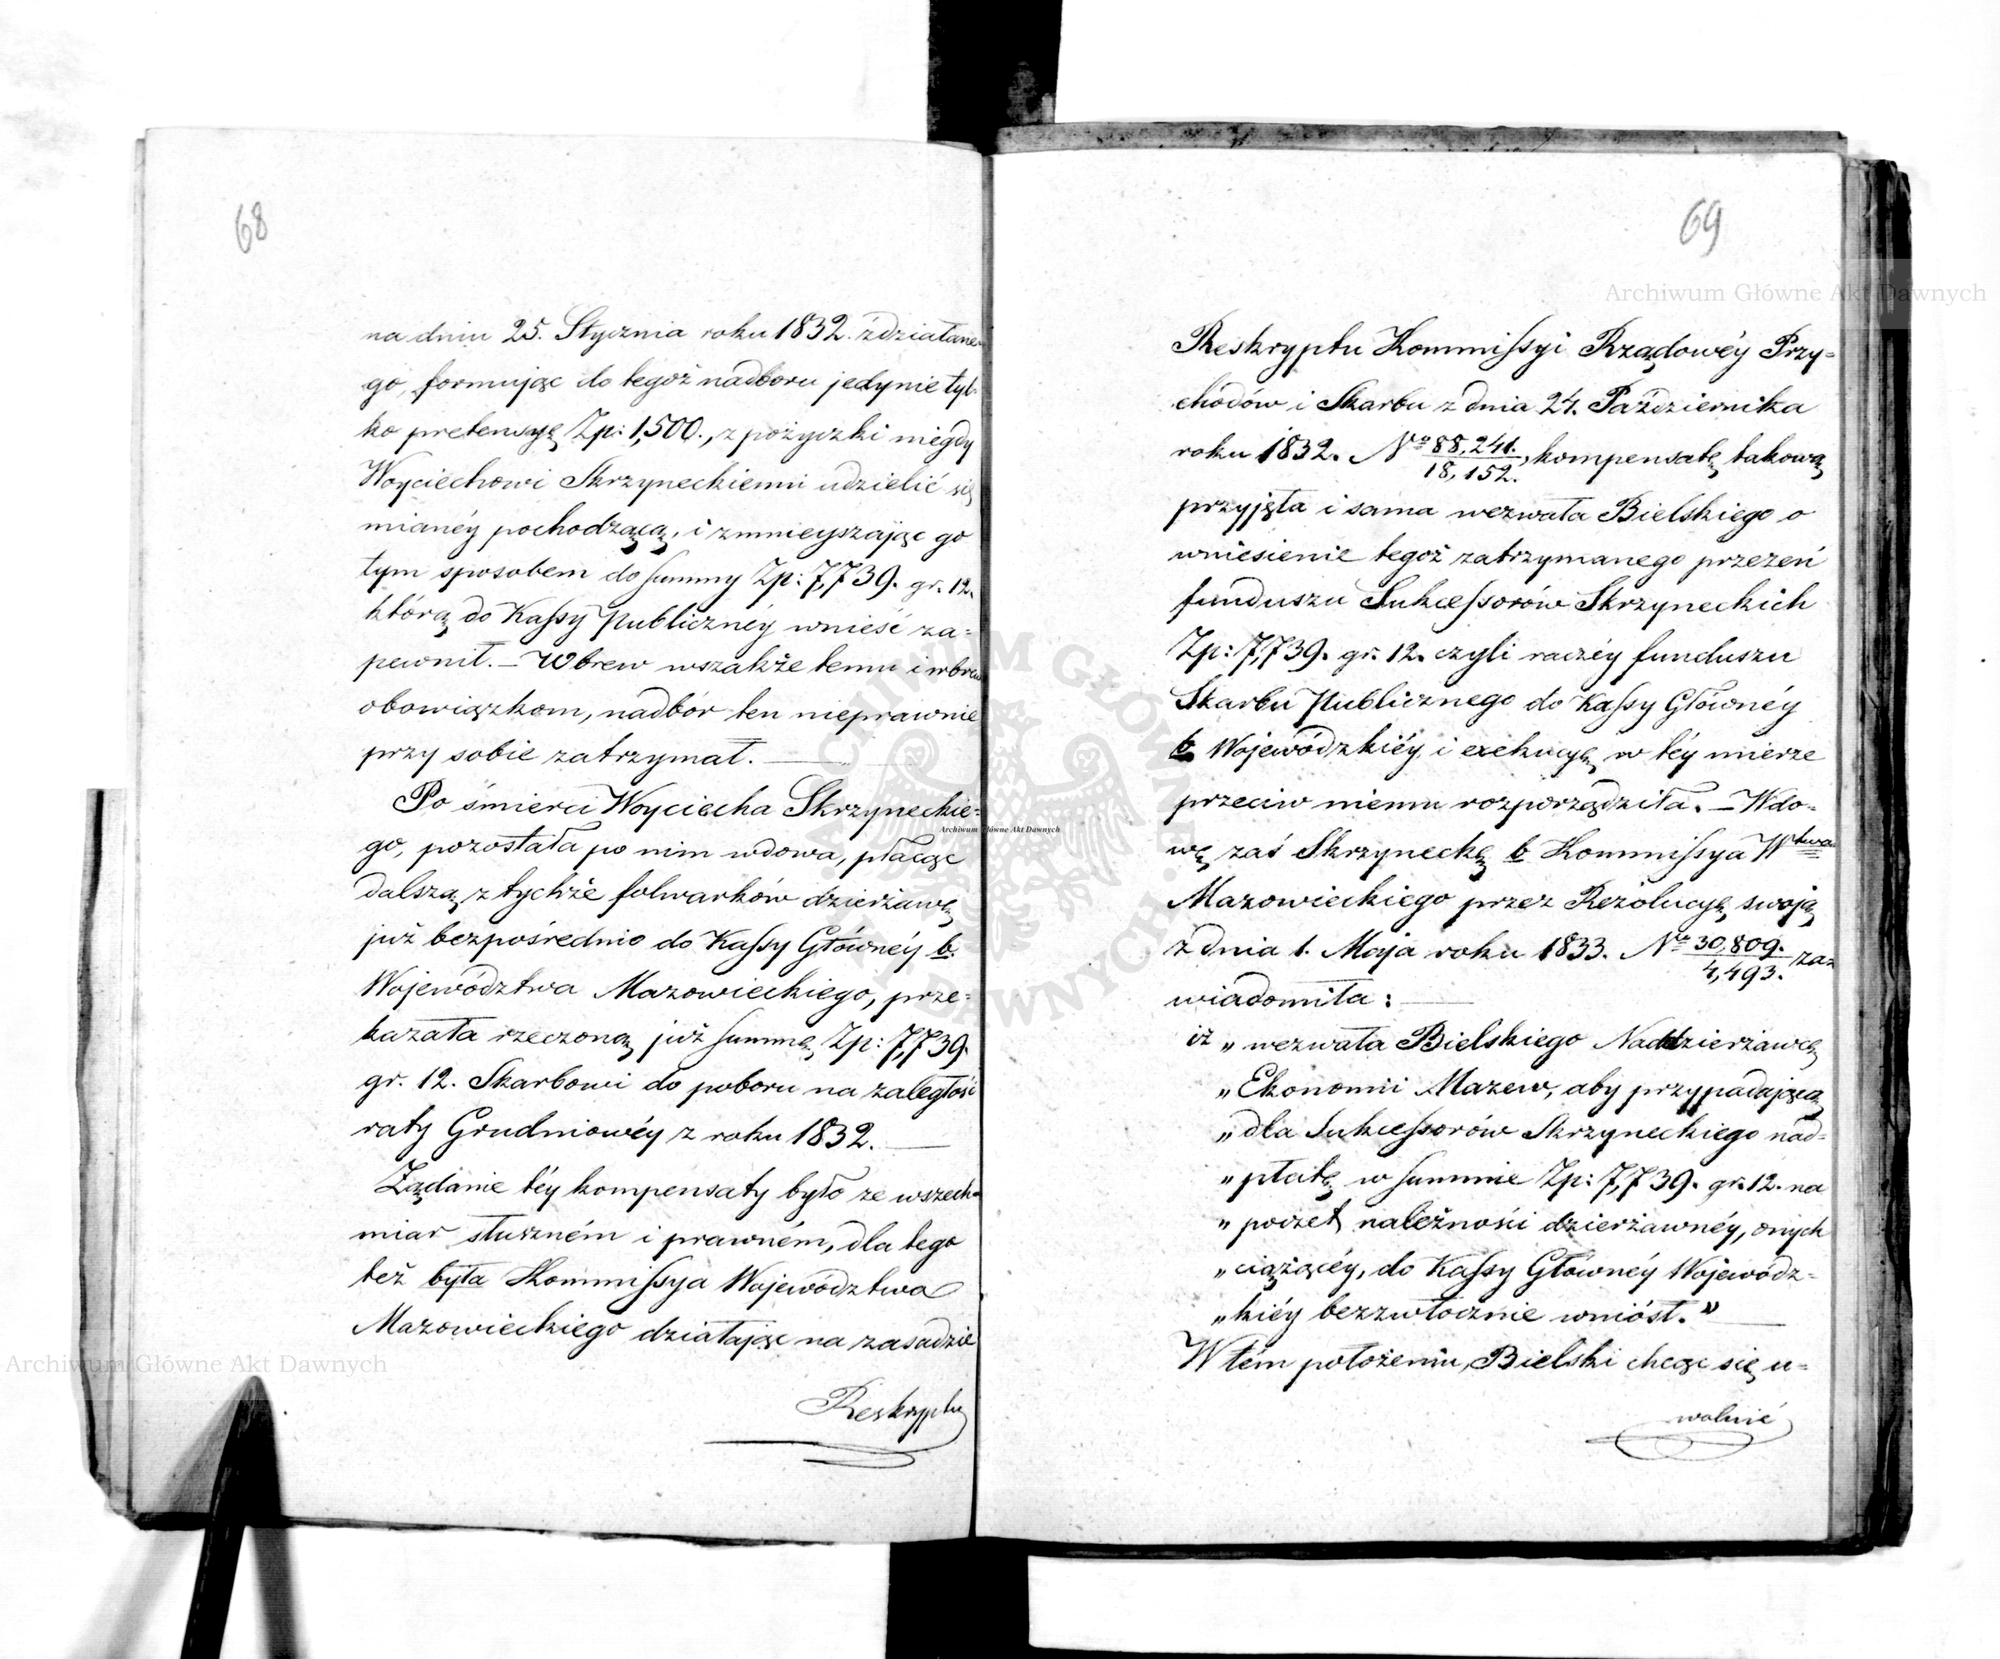 68
na dniu 25. Stycznia roku 1832. zdziałane-
go, formując do tegoż nadboru jedynie tyl-
ko pretensyę Zp: 1,500., z pożyczki niegdy
Woyciechowi Skrzyneckiemu udzielić się
mianéy pochodzącą, i zmnieyszając go
tym sposobem do summy Zp: 7,739. gr. 12.
którą do Kassy publicznéy wnieść za-
pewnił. — Wbrew wszakże temu i wbrew
obowiązkom, nadbór ten nieprawnie
przy sobie zatrzymał.
Po śmierci Woyciecha Skrzyneckie-
go, pozostała po nim wdowa, płacąc
dalszą z tychże folwarków dzierżawę
już bezpośrednio do Kassy Głównéy b.
Województwa Mazowieckiego, prze-
kazała rzeczoną już summę Zp: 7,739.
gr. 12. Skarbowi do poboru na zaległość
raty Grudniowéy z roku 1832.
Żądanie téy kompensaty było ze wszech-
miar słuszném i prawném, dla tego
też była Kommissya Województwa
Mazowieckiego działając na zasadzie
Reskryptu
69
Reskryptu Kommissyi Rządowéy Przy-
chodów i Skarbu z dnia 24. Października
roku 1832. No 88,241./18,152., kompensatę takową
przyjęła i sama wezwała Bielskiego o
wniesienie tegoż zatrzymanego przezeń
funduszu Sukcessorów Skrzyneckich
Zp: 7,739. gr. 12. czyli raczéy funduszu
Skarbu publicznego do Kassy Głównéy
b. Wojewódzkiéy, i exekucyę w téy mierze
przeciw niemu rozporządziła. — Wdo-
wę zaś Skrzynecką b. Kommissya Wztwa
Mazowieckiego przez Rezolucyę swoją
z dnia 1. Maja roku 1833. No 30,809./4,493. za-
wiadomiła:
iż „wezwała Bielskiego Naddzierżawcę
„Ekonomii Mazew, aby przypadającą
„dla Sukcessorów Skrzyneckiego nad-
„płatę w summie Zp: 7,739. gr. 12. na
„poczet należności dzierżawnéy, onych
„ciążącéy, do Kassy Głównéy Wojewódz-
„kiéy bezzwłocznie wniósł.”
W tém położeniu, Bielski chcąc się u-
wolnić
Archiwum Główne Akt Dawnych
Archiwum Główne Akt Dawnych
Archiwum Główne Akt Dawnych